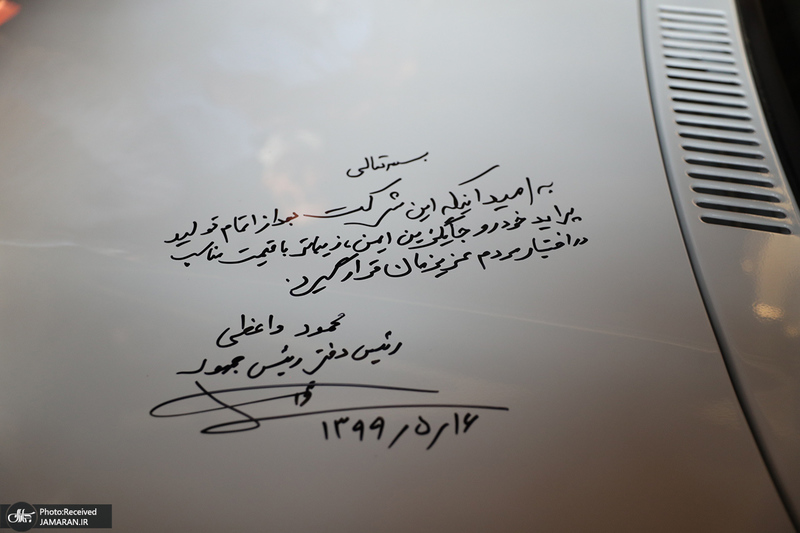 بسمه تعالی
به امید اینکه این شرکت بعد از اتمام تولید
پراید خودرو جایگزین ایمن، زیباتر با قیمت مناسب
در اختیار مردم عزیزمان قرار گیرد.
محمود واعظی
رئیس دفتر رئیس جمهور
۱۳۹۹٫۵٫۱۶
Photo:Received
JAMARAN.IR